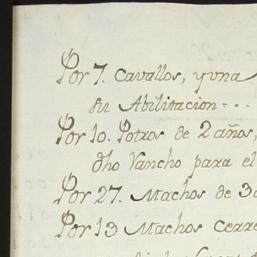 Por 7. Cavallos, y una
su Abilitacion - . .
Por 10. Potros de 2 años,
dho Rancho para el
Por 27. Machos de 3
Por 13 Machos Cerre